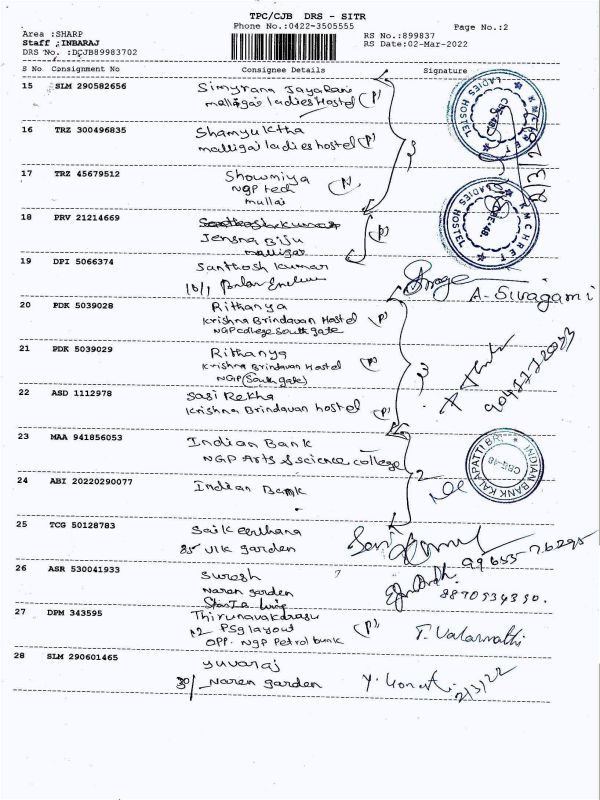 TPC/CJB DRS - SITR
Phone No.:0422-3505555
Page No.:2
Area :SHARP
Staff :INBARAJ
DRS No. :DCJB89983702
RS No.:899837
RS Date:02-Mar-2022
S No Consignment No Consignee Details Signature
15 SLM 290582656 Simyrana Jaya Rani
malligai ladies Hostel (P)
16 TRZ 300496835 Shamyuktha
malligai ladies hostel (P)
3
17 TRZ 45679512 Showmiya
NGP tech (P)
mullai
18 PRV 21214669 Santhosh kumar
Jensna Biju (P)
malligai
LADIES HOSTEL
KMCHRET
CBE-48
LADIES HOSTEL
KMCHRET
CBE-48
19 DPI 5066374 Santhosh kumar
A. Sivagami
20 PDK 5039028 Rithanya
Krishna Brindavan Hostel (P)
NGP college South gate
21 PDK 5039029 Rithanya
Krishna Brindavan Hostel (P)
NGP (South gate)
3
22 ASD 1112978 Sasi Rekha
Krishna Brindavan hostel (P)
23 MAA 941856053 Indian Bank
NGP Arts & science college
2
24 ABI 20220290077 Indian Bank
INDIAN BANK KALAPATTI BR.
CBE-48
25 TCG 50128783 Saikeerthana
85 VIK garden
99655-76295
26 ASR 530041933 Suresh
Naren garden
8870534390.
27 DPM 343595 Thirunavakdrasu
12 PSG layout (P)
OPP. NGP Petrol bunk
T. Valarmathi
28 SLM 290601465 yuvaraj
30/ Naren garden
2/3/22